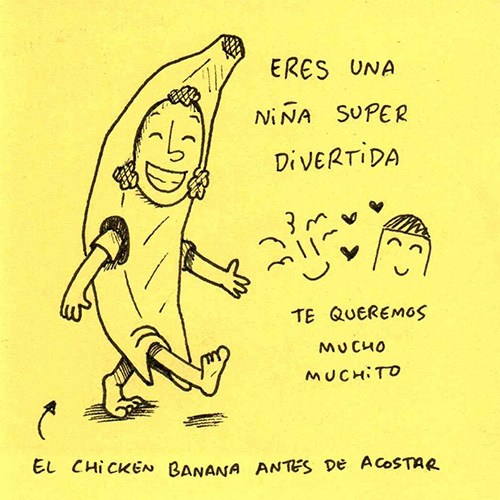 ERES UNA
NIÑA SUPER
DIVERTIDA
TE QUEREMOS
MUCHO
MUCHITO
EL CHICKEN BANANA ANTES DE ACOSTAR